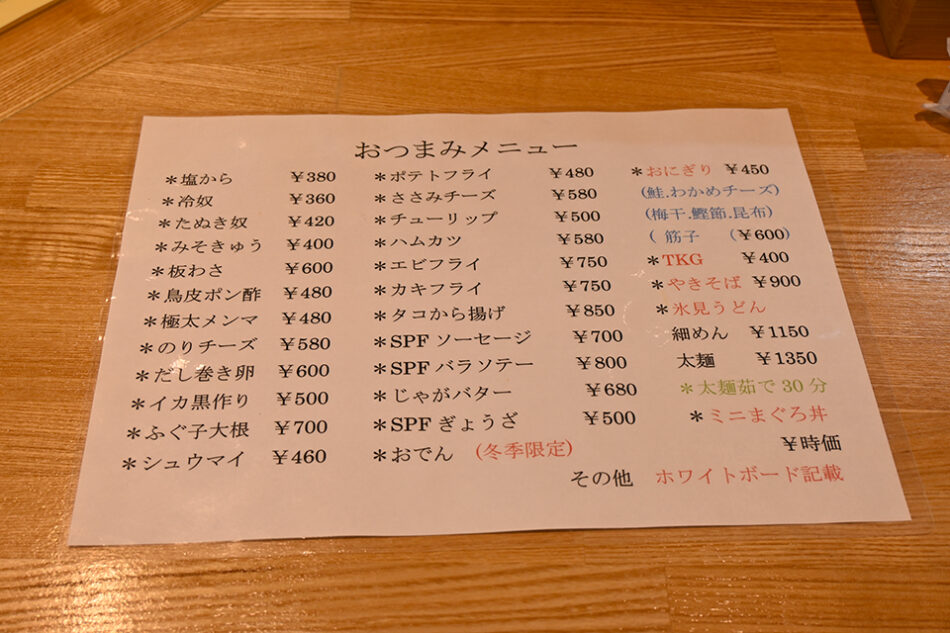 おつまみメニュー
＊塩から ￥380
＊冷奴 ￥360
＊たぬき奴 ￥420
＊みそきゅう ￥400
＊板わさ ￥600
＊鳥皮ポン酢 ￥480
＊極太メンマ ￥480
＊のりチーズ ￥580
＊だし巻き卵 ￥600
＊イカ黒作り ￥500
＊ふぐ子大根 ￥700
＊シュウマイ ￥460
＊ポテトフライ ￥480
＊ささみチーズ ￥580
＊チューリップ ￥500
＊ハムカツ ￥580
＊エビフライ ￥750
＊カキフライ ￥750
＊タコから揚げ ￥850
＊SPF ソーセージ ￥700
＊SPF バラソテー ￥800
＊じゃがバター ￥680
＊SPF ぎょうざ ￥500
＊おでん (冬季限定)
＊おにぎり ￥450
(鮭.わかめチーズ)
(梅干.鰹節.昆布)
( 筋子 (￥600)
＊TKG ￥400
＊やきそば ￥900
＊氷見うどん
細めん ￥1150
太麺 ￥1350
＊太麺茹で 30 分
＊ミニまぐろ丼
￥時価
その他 ホワイトボード記載